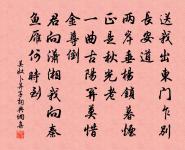 送我出東門乍別
長安道
兩岸垂楊鎖暮煙
正是秋光老
一曲古陽關莫惜
金尊倒
君向瀟湘我向秦
魚雁何時到
美奴卜算子